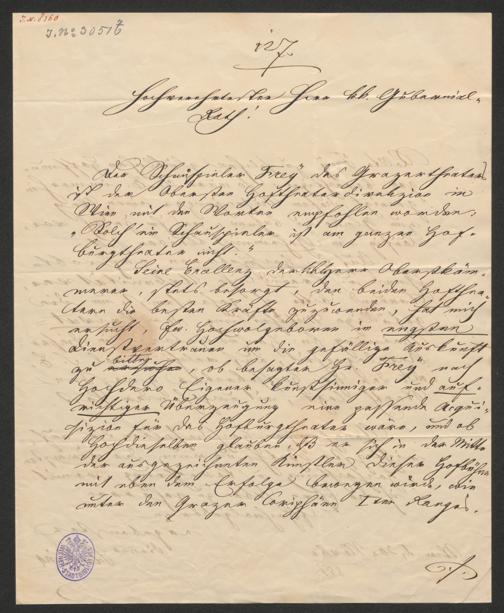 I. N. 8360
I. No 30517
127.
Hochverehrtester Herr kk. Gubernial-
Rath!
Der Schauspieler Frey des Grazertheaters
ist der Obersten Hoftheaterdirekzion in
Wien mit den Worten empfohlen worden:
"Solch' ein Schauspieler ist am ganzen Hof-
burgtheater nicht."
Seine Excellenz der Herr Oberstkäm-
merer, stets besorgt, den beiden Hofthea-
tern die besten Kräfte zuzuwenden, hat mich
ersucht, Eu. Hochwolgeboren im engsten
Dienstvertrauen um die gefällige Auskunft
zu bitten, ob besagter Hr Frey nach
Hochdero eigener kunstsinniger und auf-
richtiger Überzeugung eine passende Acqui-
sizion für das Hofburgtheater wäre, und ob
Hochdieselben glauben, daß er sich in der Mitte
der ausgezeichneten Künstler dieser Hofbühne
mit eben dem Erfolge bewegen würde, wie
unter den Grazer Coriphäen Iten Ranges.